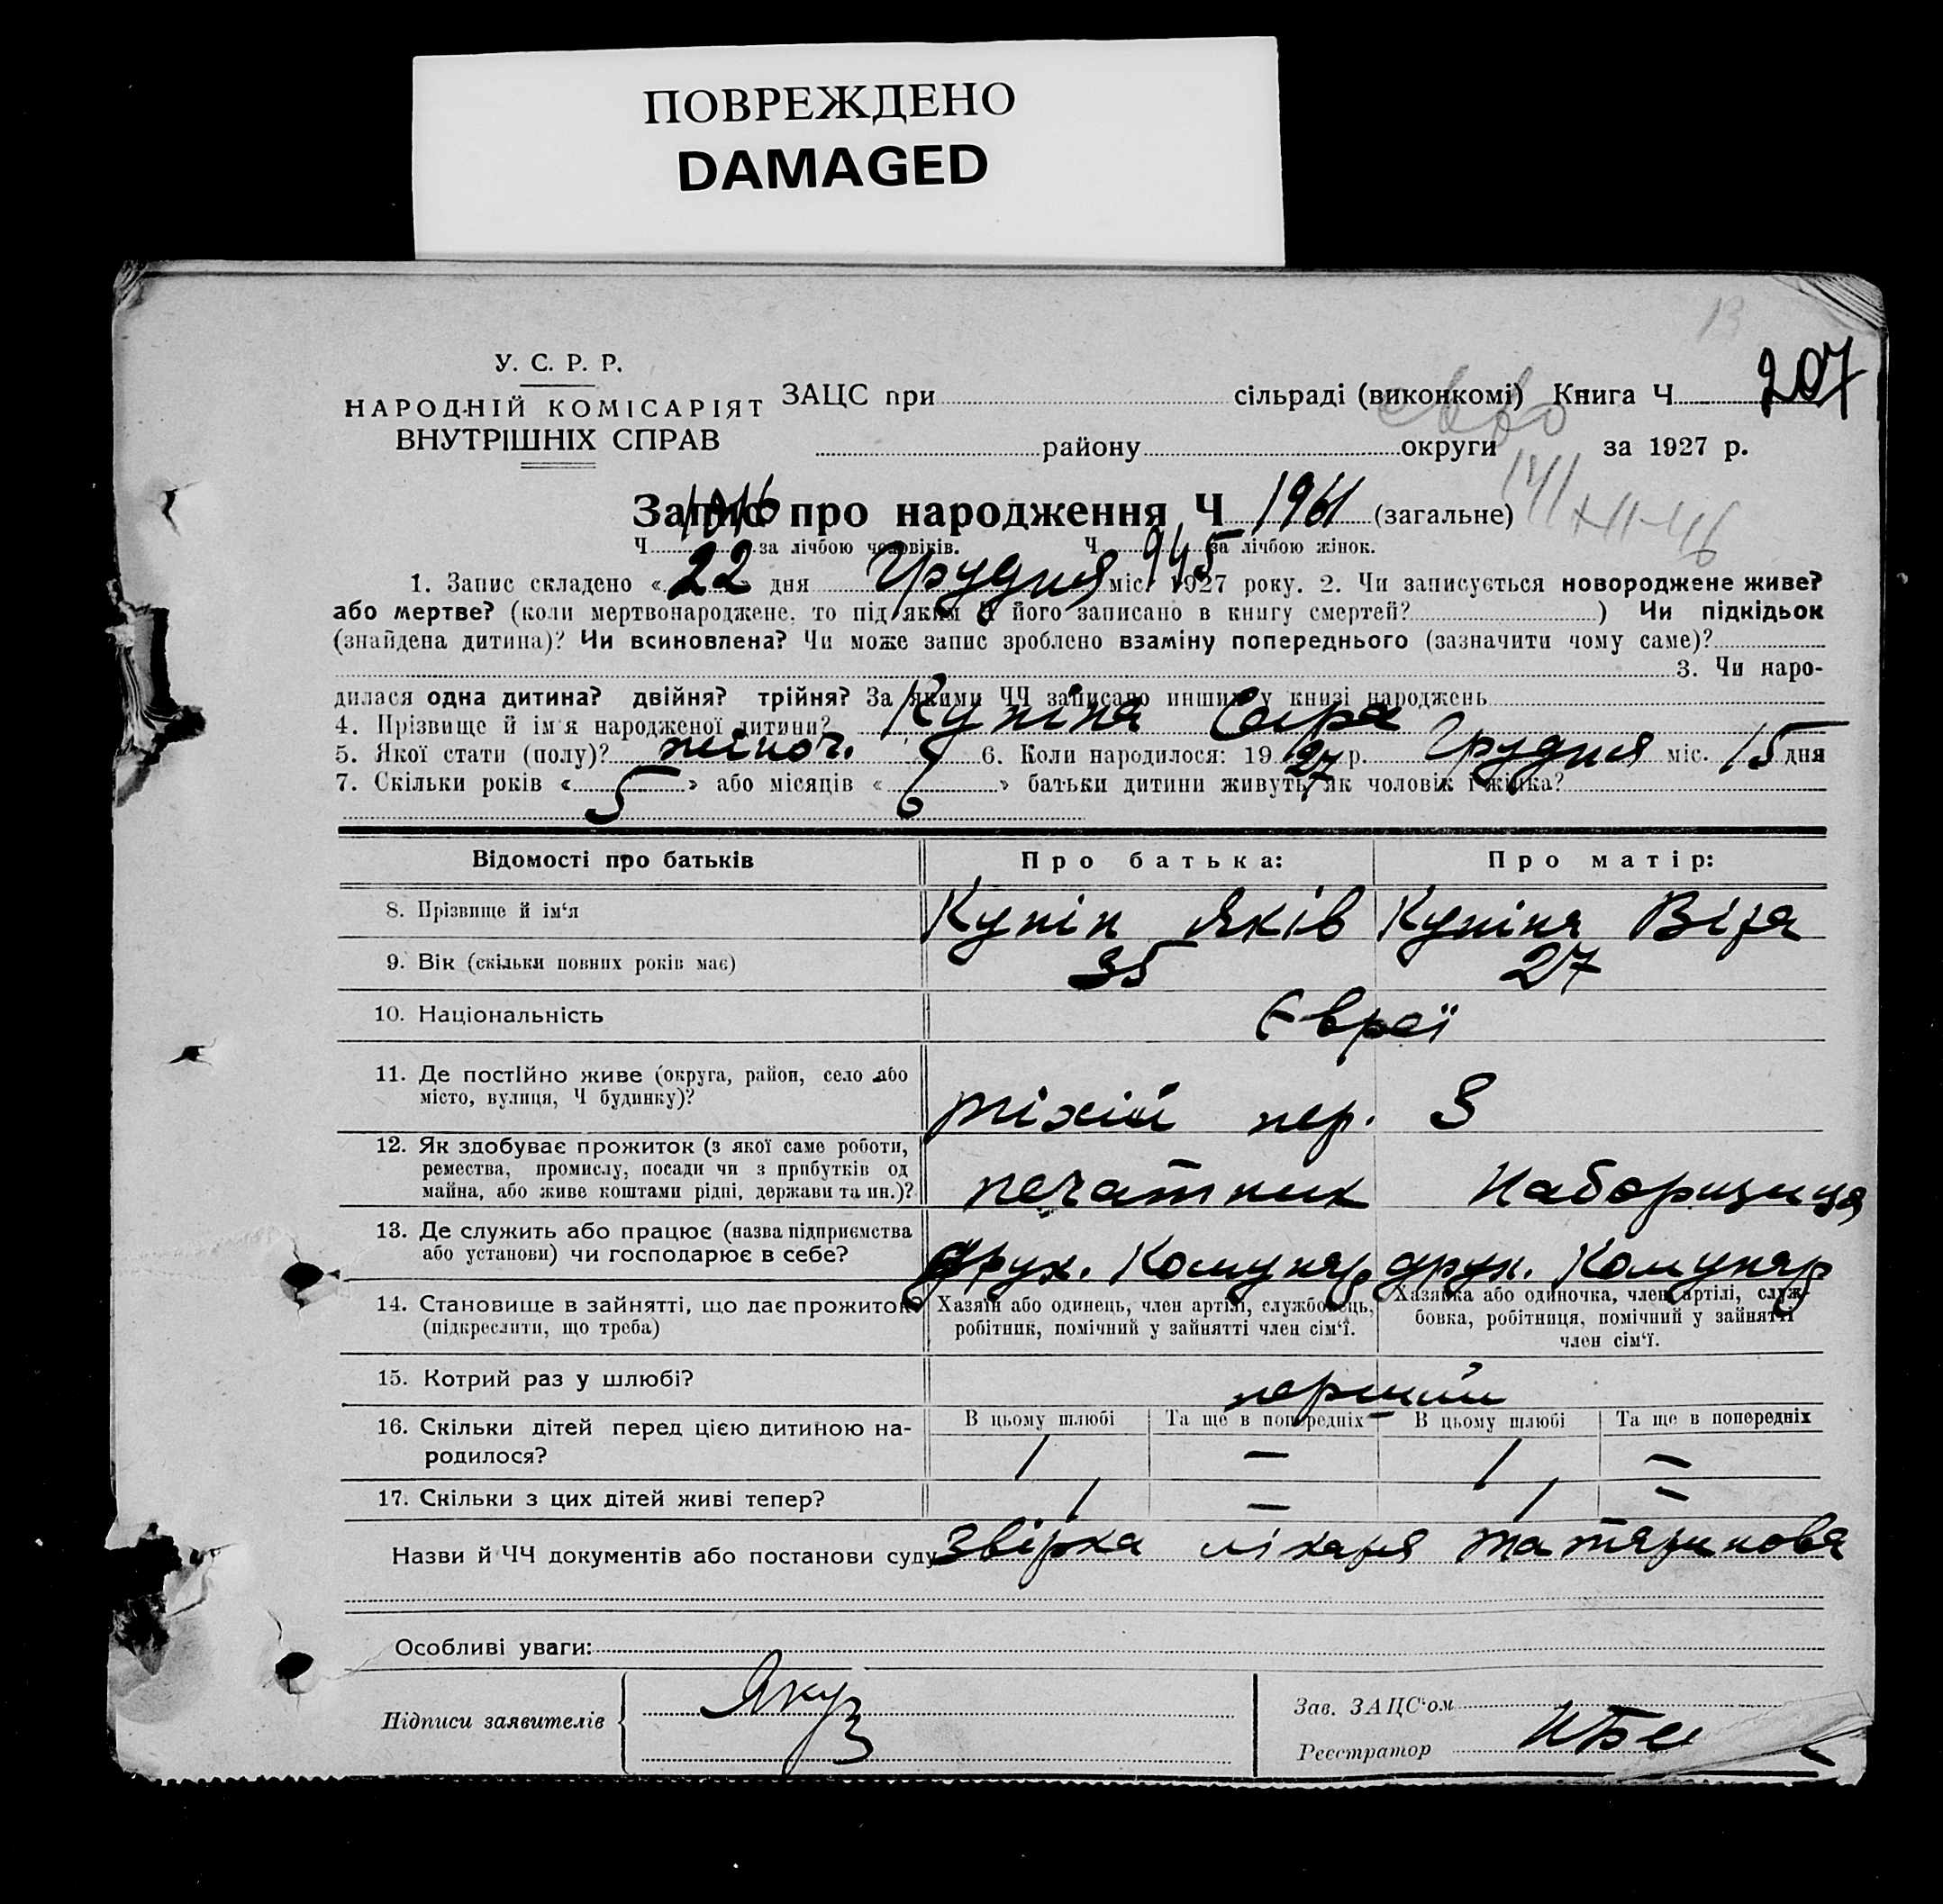 ПОВРЕЖДЕНО
DAMAGED
207
У. С. Р. Р.
НАРОДНІЙ КОМІСАРІЯТ
ВНУТРІШНІХ СПРАВ
ЗАЦС при сільраді (виконкомі) Книга Ч
району округи за 1927 р.
Запис про народження Ч 1961 (загальне)
Ч 1016 за лічбою чоловіків. Ч 945 за лічбою жінок.
1. Запис складено « 22 » дня Грудня міс. 1927 року. 2. Чи записується новороджене живе?
або мертве? (коли мертвонароджене, то під яким Ч його записано в книгу смертей? ) Чи підкідьок
(знайдена дитина)? Чи всиновлена? Чи може запис зроблено взаміну попереднього (зазначити чому саме)?
3. Чи наро-
дилася одна дитина? двійня? трійня? За якими ЧЧ записано инших у книзі народжень
4. Прізвище й ім'я народженої дитини? Куніна Сара
5. Якої стати (полу)? жіноч. 6. Коли народилося: 19 27 р. Грудня міс. 15 дня
7. Скільки років « 5 » або місяців « » батьки дитини живуть як чоловік і жінка?
Відомості про батьків Про батька: Про матір:
8. Прізвище й ім'я Кунін Яків Куніна Віра
9. Вік (скільки повних років має) 35 27
10. Національність Євреї
11. Де постійно живе (округа, район, село або
місто, вулиця, Ч будинку)? тіхій пер.
12. Як здобуває прожиток (з якої саме роботи,
ремества, промислу, посади чи з прибутків од
майна, або живе коштами рідні, держави та ин.)? печатник Наборщиця
13. Де служить або працює (назва підприємства
або установи) чи господарює в себе? друк. Комунар друк. Комунар
14. Становище в зайнятті, що дає прожиток?
(підкреслити, що треба)
Хазяїн або одинець, член артілі, службовець,
робітник, помічний у зайнятті член сім'ї.
Хазяйка або одиночка, член артілі, служ-
бовка, робітниця, помічний у зайнятті
член сім'ї.
15. Котрий раз у шлюбі? перший
16. Скільки дітей перед цією дитиною на-
родилося?
В цьому шлюбі Та ще в попередніх В цьому шлюбі Та ще в попередніх
1 — 1 —
17. Скільки з цих дітей живі тепер? 1 — 1 —
Назви й ЧЧ документів або постанови суду звірка лікаря
Особливі уваги:
Підписи заявителів
Зав. ЗАЦС'ом
Реєстратор